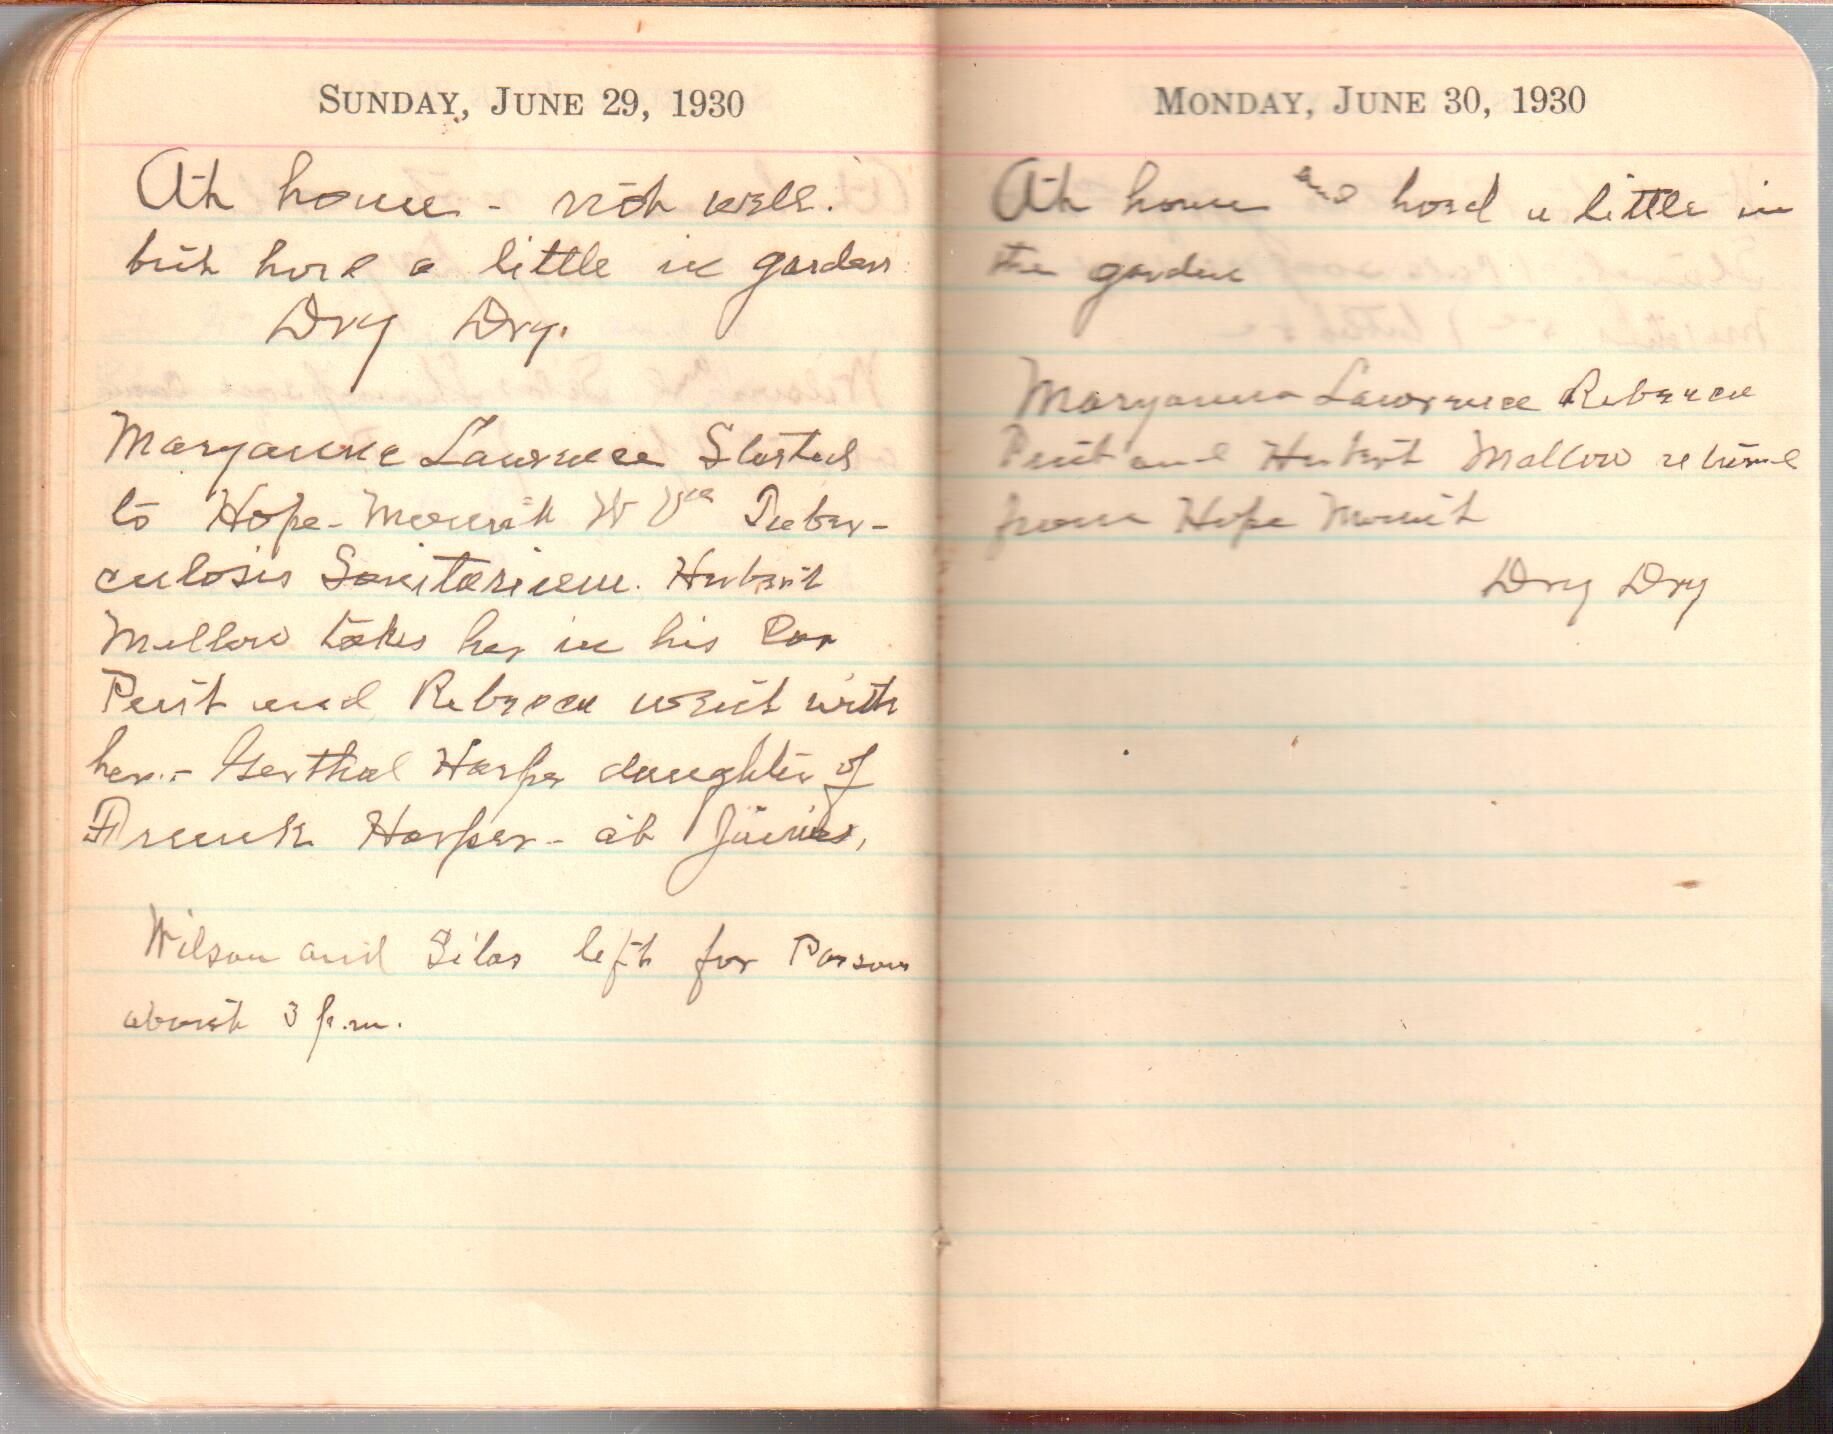 SUNDAY, JUNE 29, 1930
At home - not well.
but hoed a little in garden
Dry Dry.
Maryanna Lawrence Started
to Hope-Mount W Va Tuber-
culosis Sanitarium. Herbert
Mellow takes her in his Car
and Rebecca went with
her.- Harper daughter of
Frank Harper - at
Wilson and Silas left for Parsons
about 3 p.m.
MONDAY, JUNE 30, 1930
At home and hoed a little in
the garden
Maryanna Lawrence Rebecca
and Herbert Mallow returned
from Hope Mount
Dry Dry